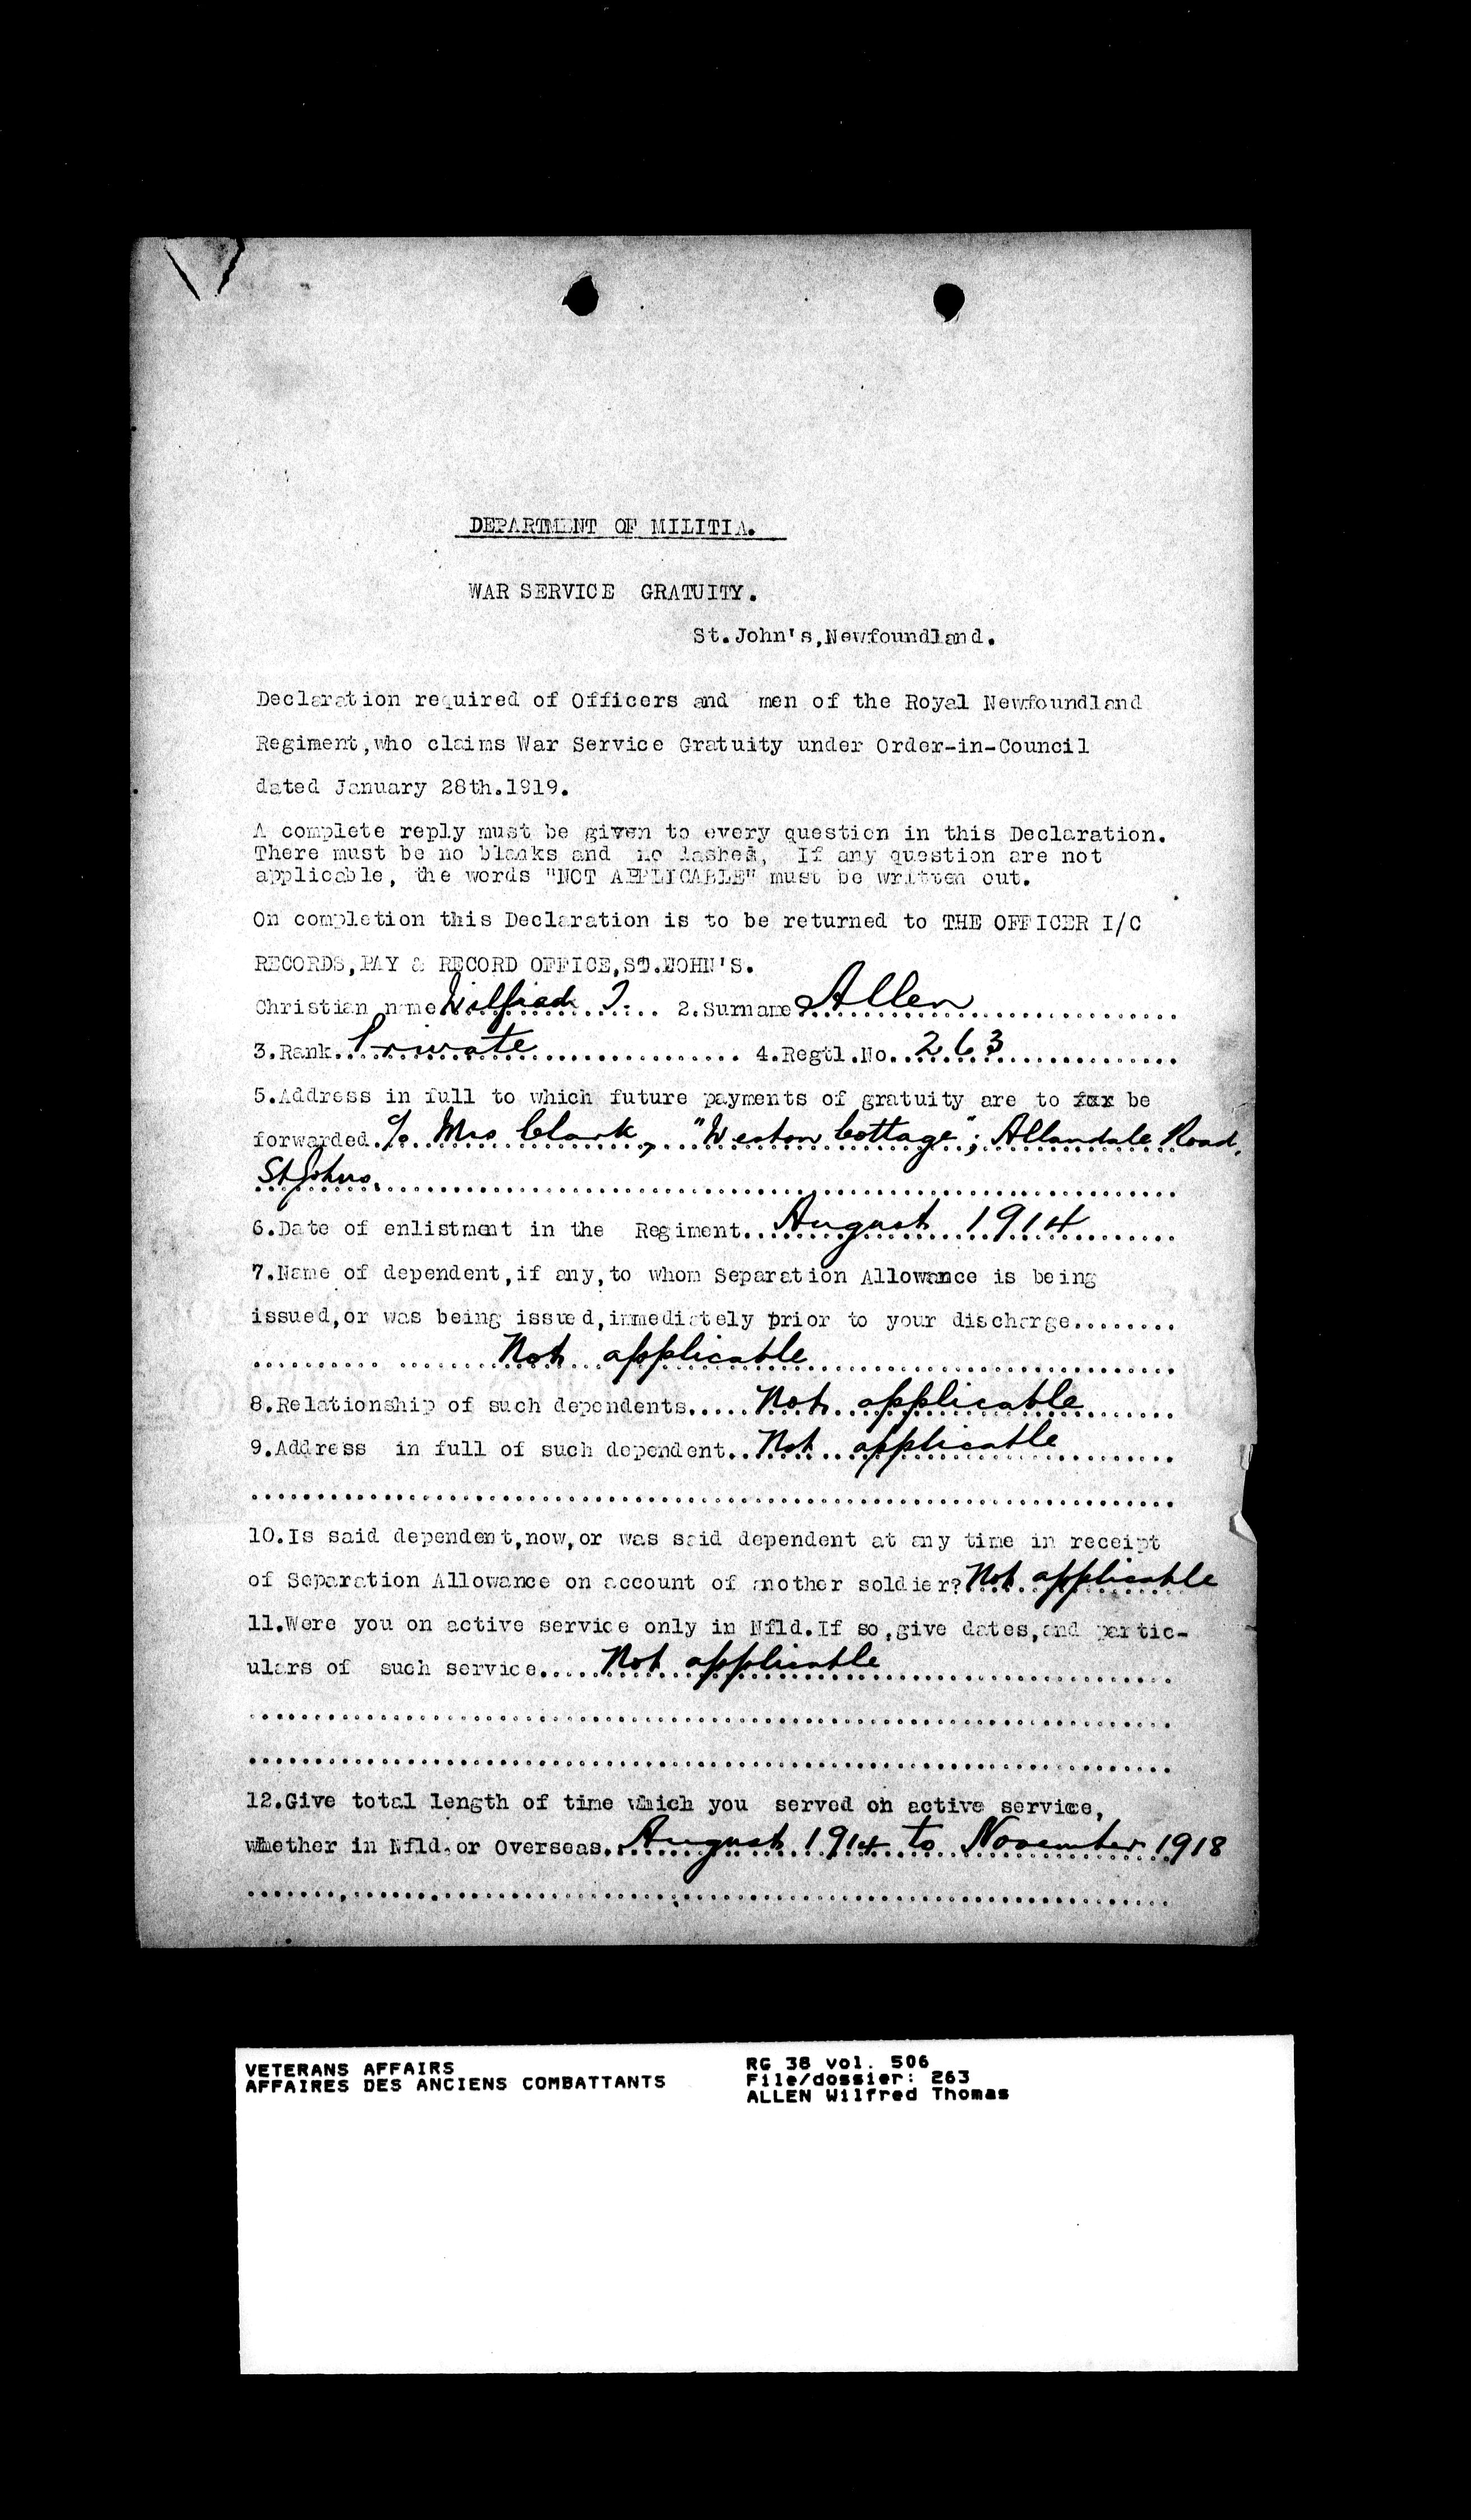 DEPARTMENT OF MILITIA.
WAR SERVICE GRATUITY.
St.John's,Newfoundland.
Declaration required of Officers and men of the Royal Newfoundland
Regiment,who claims War Service Gratuity under Order-in-Council
dated January 28th.1919.
A complete reply must be given to every question in this Declaration.
There must be no blanks and no dashes, If any question are not
applicable, the words "NOT APPLICABLE" must be written out.
On completion this Declaration is to be returned to THE OFFICER I/C
RECORDS,PAY & RECORD OFFICE,ST.JOHN'S.
Christian name Wilfred T. ... 2.Surname Allen
3.Rank. Private 4.Regtl.No. 263
5.Address in full to which future payments of gratuity are to fxx be
forwarded. c/o Mrs Clark, "Weston Cottage"; Allandale Road,
St Johns.
6.Date of enlistment in the Regiment. August 1914
7.Name of dependent,if any,to whom Separation Allowance is being
issued,or was being issued,immediately prior to your discharge........
Not applicable
8.Relationship of such dependents..... Not applicable
9.Address in full of such dependent.. Not applicable
10.Is said dependent,now,or was said dependent at any time in receipt
of Separation Allowance on account of another soldier? Not applicable
11.Were you on active service only in Nfld.If so,give dates,and partic-
ulars of such service.... Not applicable
12.Give total length of time which you served on active service,
whether in Nfld.or Overseas. August 1914 to November 1918
VETERANS AFFAIRS
AFFAIRES DES ANCIENS COMBATTANTS
RG 38 vol. 506
File/dossier: 263
ALLEN Wilfred Thomas